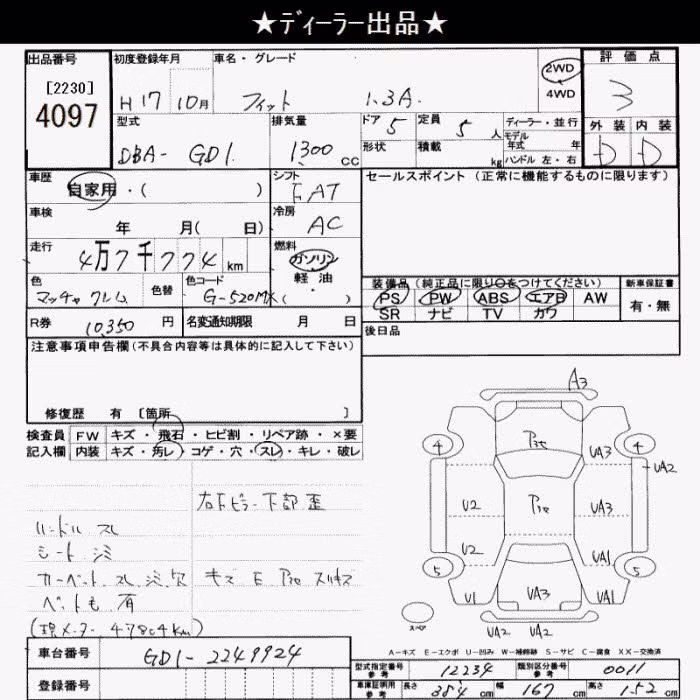 ★ディーラー出品★
出品番号
[2230]
4097
初度登録年月
H17 10月
車名・グレード
フィット 1.3A.
2WD
4WD
評価点
3
外装 内装
D D
型式
DBA- GD1.
排気量
1300 cc
ドア 5
定員 5 人
形状
積載 kg
ディーラー・並行
モデル年式 年
ハンドル 左・右
車歴
自家用・( )
シフト
FAT
セールスポイント (正常に機能するものに限ります)
車検
年 月( 日)
冷房
AC
走行
4万7千774 km
燃料
ガソリン
軽油
( )
色
マッチャクレム
色替
色コード
G-520MX
装備品(純正品に限り○をつけてください)
PS PW ABS エアB AW
SR ナビ TV カワ
新車保証書
有・無
R券
10,350 円
名変通知期限 月 日
後日品
注意事項申告欄(不具合内容等は具体的に記入して下さい)
修復歴 有 [箇所 ]
検査員
記入欄
FW キズ・飛石・ヒビ割・リペア跡・×要
内装 キズ・汚レ・コゲ・穴・スレ・キレ・破レ
右下ピラー下部歪
ハンドル スレ
シート シミ
カーペット スレ シミ 欠
キズ E Pie スリキズ
ペットも 有
(現メーター 47804km)
A3
Pie
4 4
UA3
UA2
U2 Pie UA3
U2 UA1
5 5
U1 UA3 UA1
UA2 UA2
スペア
A-キズ E-エクボ U-凹み W-補修跡 S-サビ C-腐食 XX-交換済
車台番号
GD1-2249924
登録番号
型式指定番号
参考
12234
類別区分番号
参考
0011
車庫証明用
参考
長さ 384 cm 幅 167 cm 高さ 152 cm